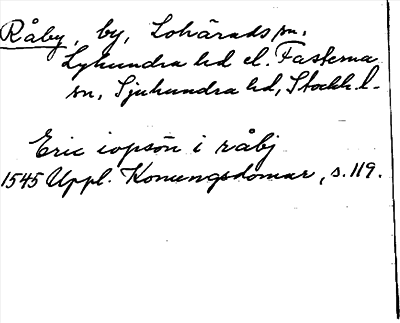 Råby, by, Lohärads sn.
Lyhundra hd el. Fasterna
sn, Sjuhundra hd, Stockh. l.
Eric iopson i råbj
1545 Uppl. Konungsdomar, s. 119.